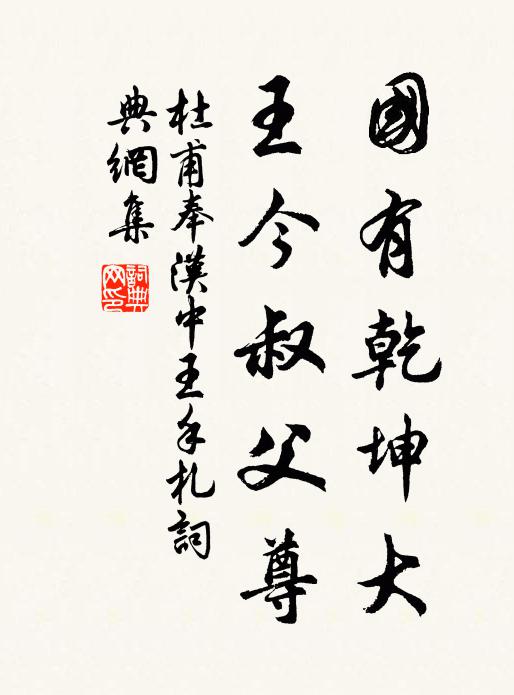 國有乾坤大
王今叔父尊
杜甫奉漢中王手札詞
典網集
詞典網印